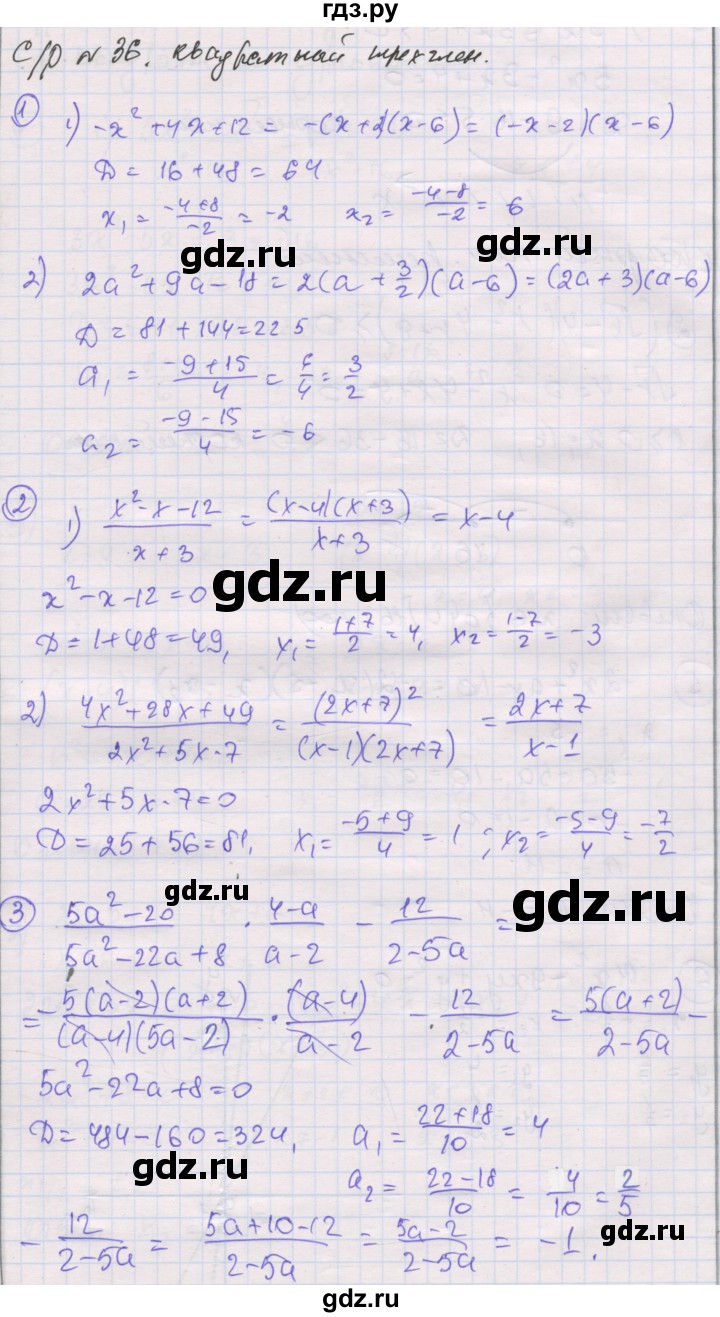 гдз.ру
С/р № 36. Квадратный трехчлен.
① 1) -x² + 4x + 12 = -(x+2)(x-6) = (-x-2)(x-6)
D = 16 + 48 = 64
x₁ = (-4+8)/(-2) = -2   x₂ = (-4-8)/(-2) = 6
gdz.ru
gdz.ru
2) 2a² + 9a - 18 = 2(a + 3/2)(a-6) = (2a+3)(a-6)
D = 81 + 144 = 225
a₁ = (-9+15)/4 = 6/4 = 3/2
gdz.ru
a₂ = (-9-15)/4 = -6
② 1) (x²-x-12)/(x+3) = (x-4)(x+3)/(x+3) = x-4
x² - x - 12 = 0
gdz.ru
gdz.ru
D = 1+48 = 49, x₁ = (1+7)/2 = 4, x₂ = (1-7)/2 = -3
2) (4x²+28x+49)/(2x²+5x-7) = (2x+7)²/((x-1)(2x+7)) = (2x+7)/(x-1)
2x²+5x-7=0
D = 25+56=81, x₁ = (-5+9)/4 = 1; x₂ = (-5-9)/4 = -7/2
gdz.ru
gdz.ru
③ (5a²-20)/(5a²-22a+8) · (4-a)/(a-2) - 12/(2-5a) =
= -5(a-2)(a+2)/((a-4)(5a-2)) · (a-4)/(a-2) - 12/(2-5a) = 5(a+2)/(2-5a) -
5a²-22a+8=0
D = 484-160=324, a₁ = (22+18)/10 = 4
gdz.ru
a₂ = (22-18)/10 = 4/10 = 2/5
gdz.ru
- 12/(2-5a) = (5a+10-12)/(2-5a) = (5a-2)/(2-5a) = -1.
gdz.ru